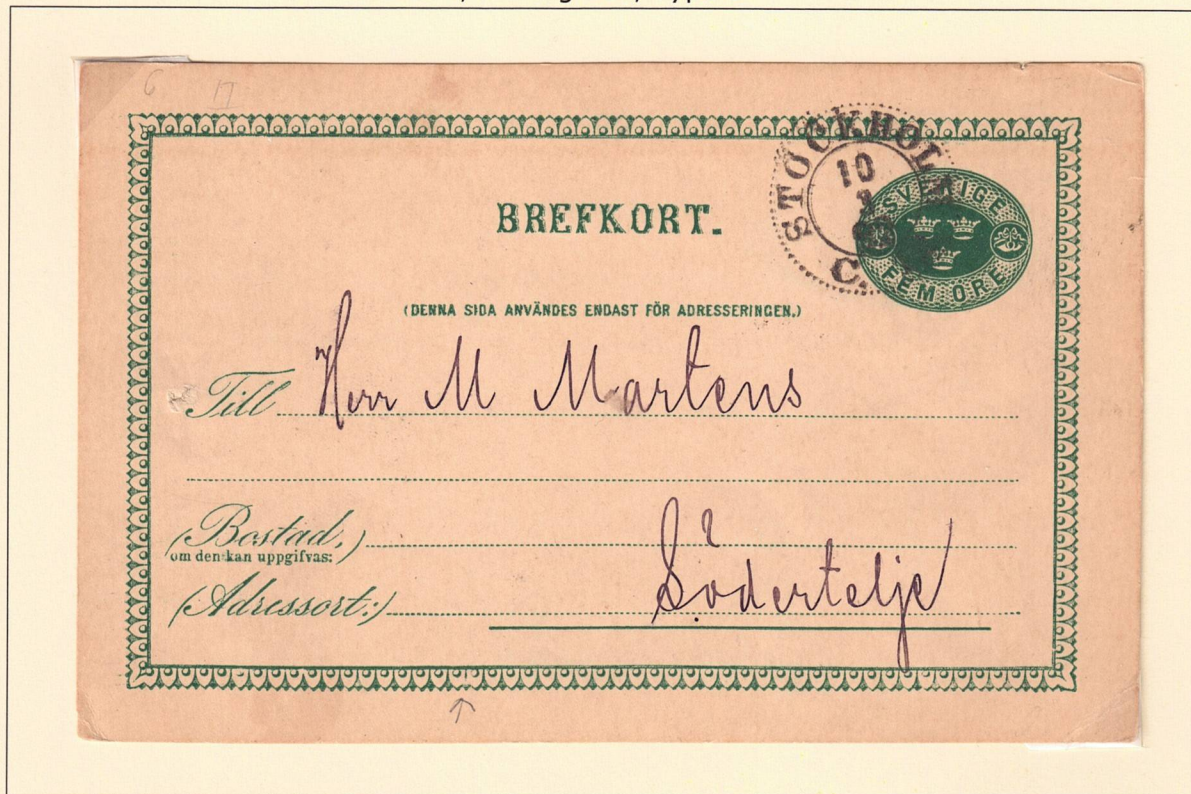 BREFKORT.
STOCKHOLM
10
C.
SVERIGE
FEM ÖRE
(DENNA SIDA ANVÄNDES ENDAST FÖR ADRESSERINGEN.)
Till Herr M Martens
(Bostad,)
om den kan uppgifvas:
(Adressort:) Södertelje